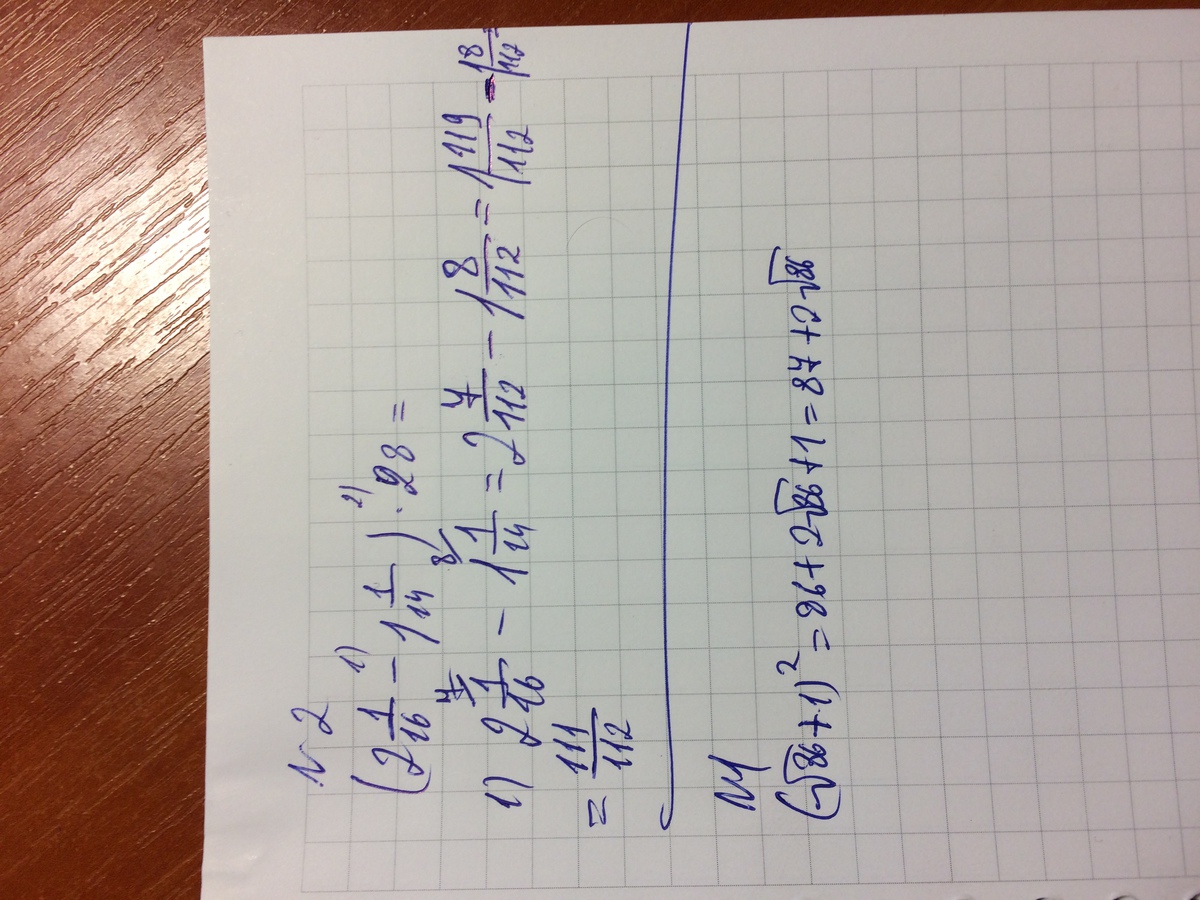 N 2
(2 1/16 - 1 1/14) · 28 =
1) 2)
1) 2 1/16 - 1 1/14 = 2 7/112 - 1 8/112 = 1 119/112 - 1 8/112
7 8
= 111/112
N1
(√86+1)² = 86+2√86+1 = 87+2√86